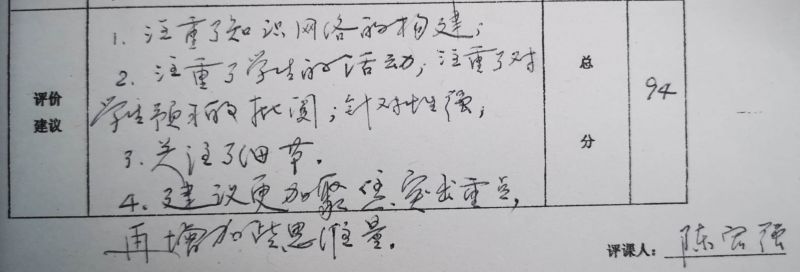 1. 注重了知识网络的构建；
2. 注重了学生的活动；注重了对
评价建议
学生预习的批阅；针对性强；
总分
94
3. 关注了细节。
4. 建议更加聚焦，突出重点，
再增加些思维量。
评课人：陈宏强